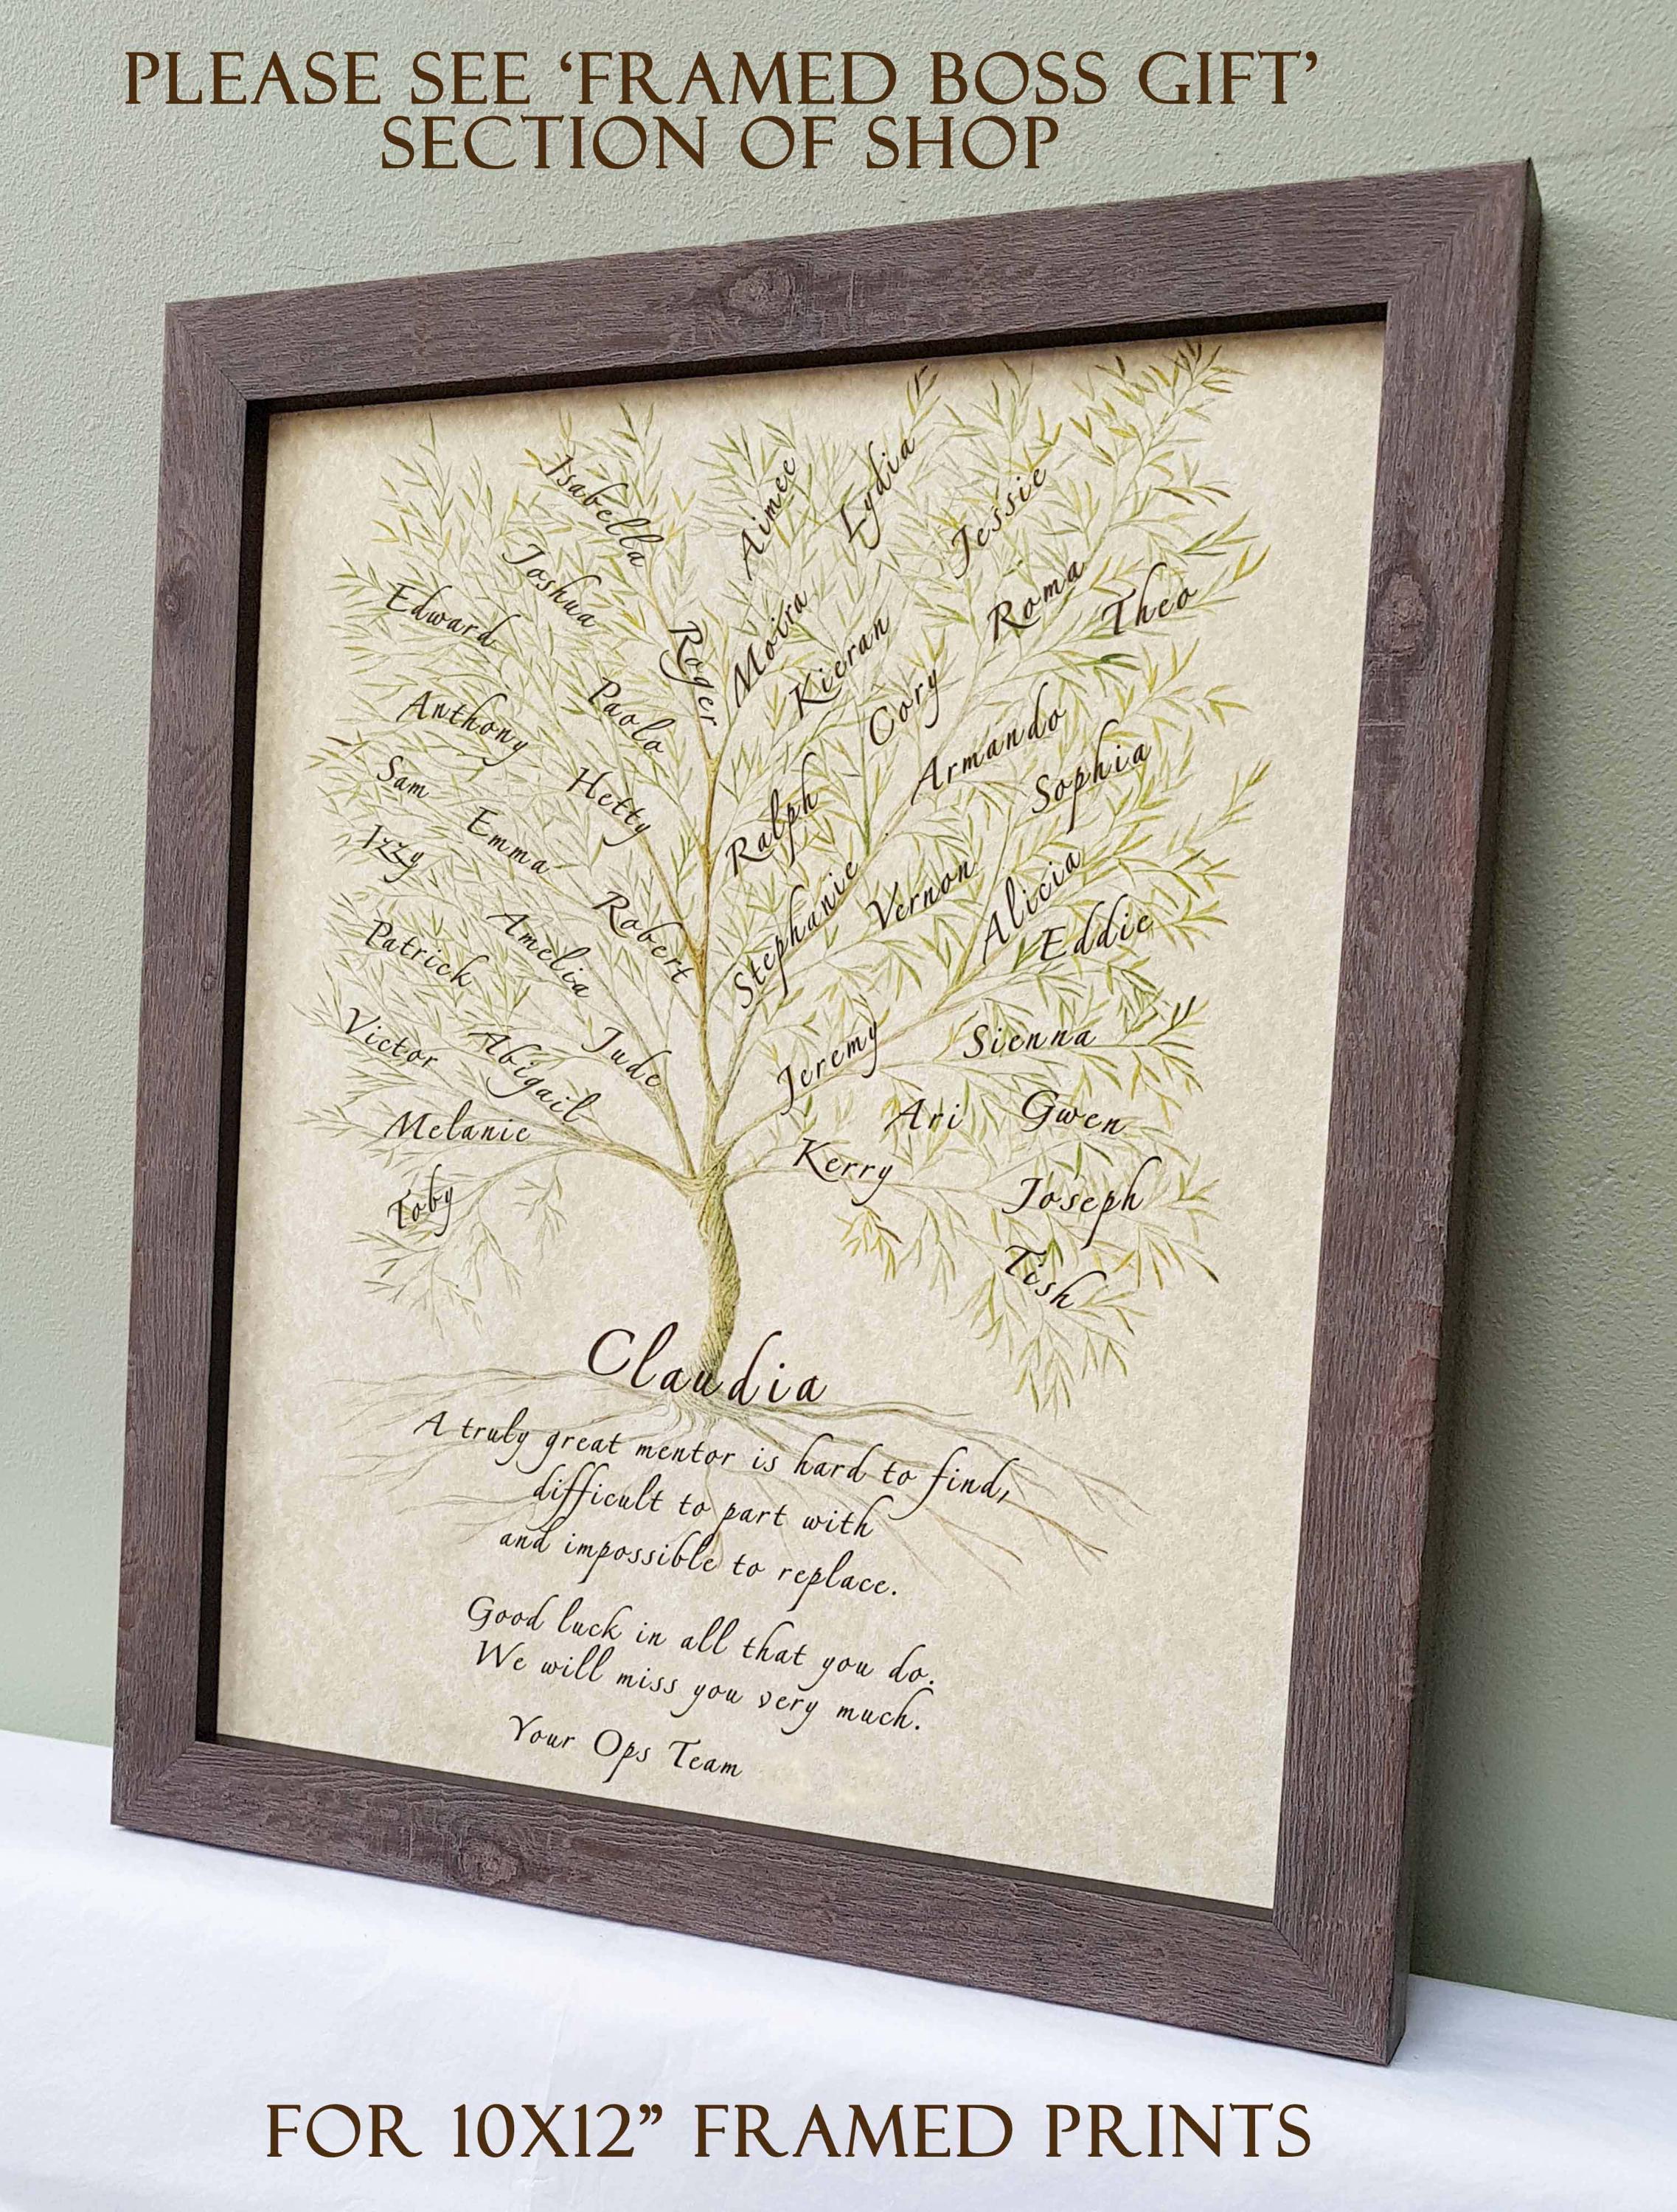 PLEASE SEE ‘FRAMED BOSS GIFT’
SECTION OF SHOP
Isabella
Aimee
Lydia
Jessie
Joshua
Edward
Roger
Moira
Kieran
Roma
Theo
Anthony
Paolo
Cory
Armando
Sophia
Sam
Hetty
Emma
Izzy
Ralph
Robert
Stephanie
Vernon
Alicia
Eddie
Patrick
Amelia
Victor
Abigail
Jude
Jeremy
Sienna
Melanie
Ari
Gwen
Toby
Kerry
Joseph
Tish
Claudia
A truly great mentor is hard to find,
difficult to part with
and impossible to replace.
Good luck in all that you do.
We will miss you very much.
Your Ops Team
FOR 10X12” FRAMED PRINTS